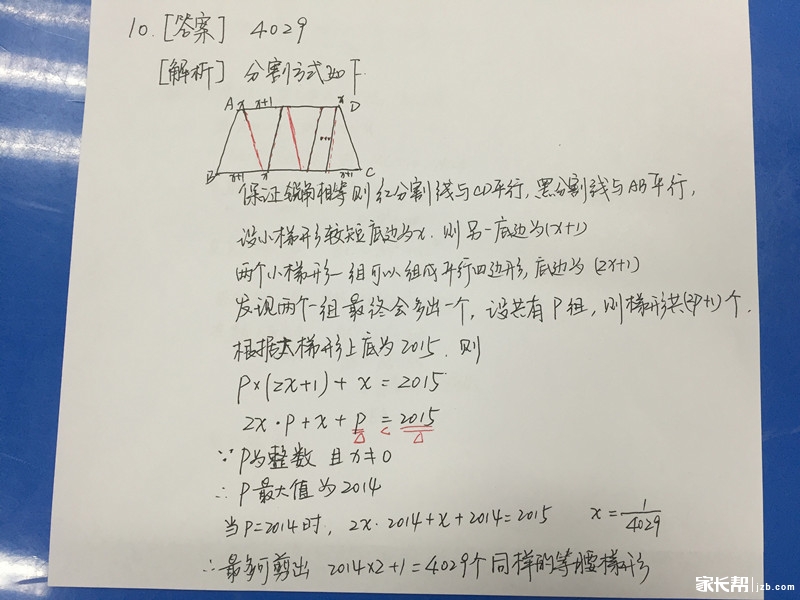 10. [答案] 4029
[解析] 分割方式如下
A x x+1 x D
B x+1 x x+1 C
保证锐角相等则红分割线与CD平行,黑分割线与AB平行,
设小梯形较短底边为x. 则另一底边为(x+1)
两个小梯形一组可以组成平行四边形,底边为(2x+1)
发现两个一组最终会多出一个,设共有P组,则梯形共(2P+1)个.
根据大梯形上底为2015. 则
P×(2x+1)+x=2015
2x·P+x+P=2015
△ < △
∵P为整数 且x≠0
∴P最大值为2014
当P=2014时, 2x·2014+x+2014=2015 x=1/4029
∴最多可剪出 2014×2+1=4029个同样的等腰梯形
家长帮 jzb.com